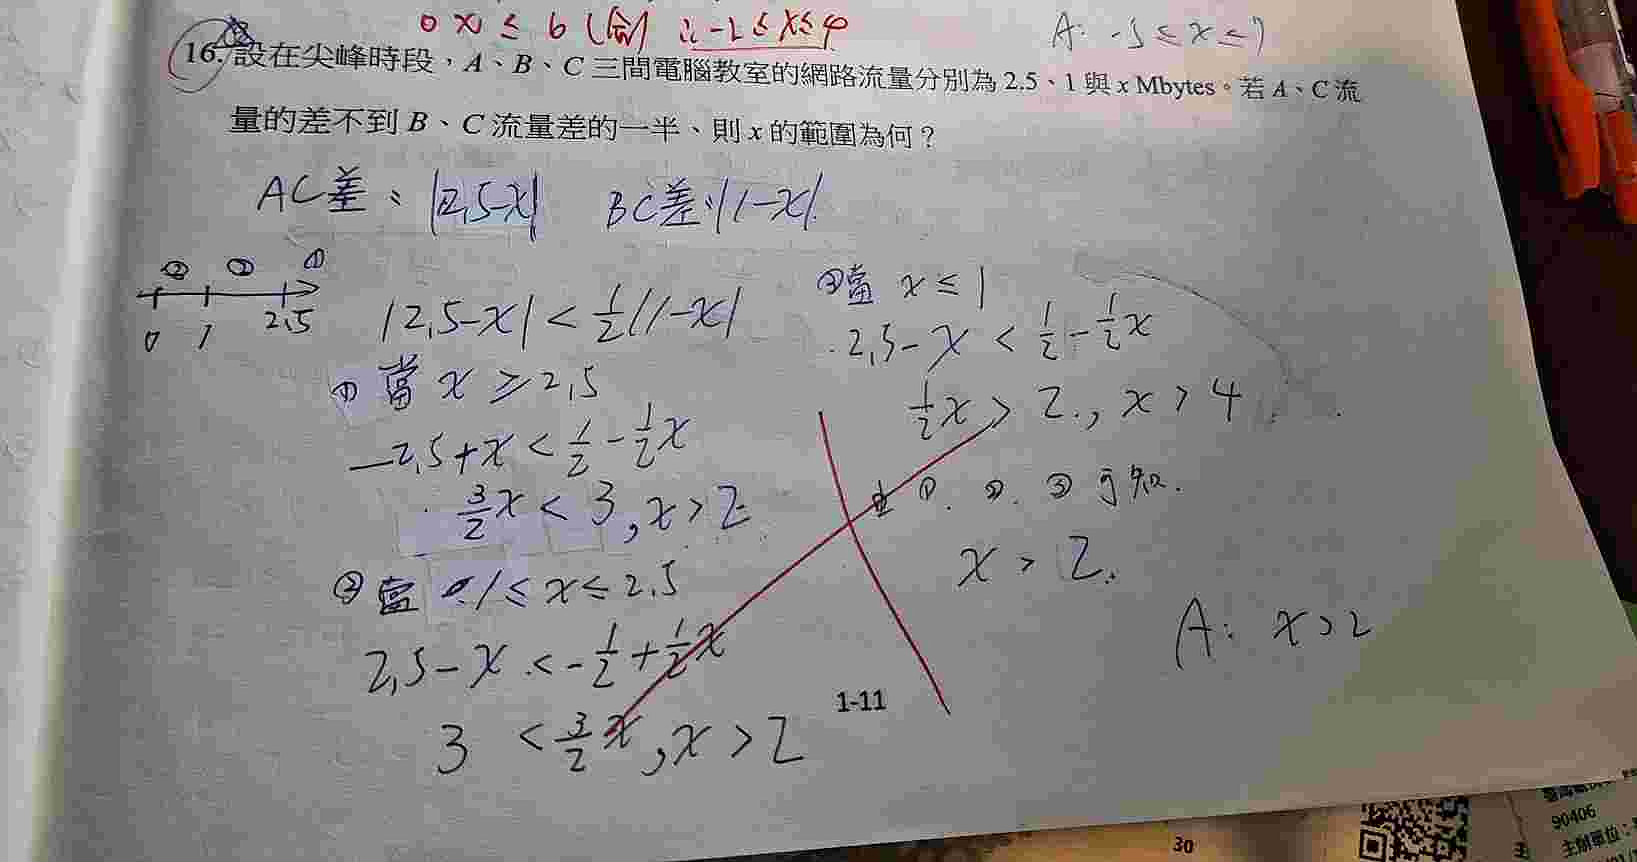 0 x ≤ 6 (合) ∴ -2 ≤ x ≤ 4
A: -5 ≤ x ≤ 7
16. 設在尖峰時段，A、B、C 三間電腦教室的網路流量分別為 2.5、1 與 x Mbytes。若 A、C 流
量的差不到 B、C 流量差的一半、則 x 的範圍為何？
AC差：|2.5-x| BC差：|1-x|
③ ② ①
0 1 2.5
|2.5-x| < 1/2|1-x|
① 當 x ≥ 2.5
-2.5+x < 1/2 - 1/2x
3/2x < 3, x > 2
② 當 1 ≤ x ≤ 2.5
2.5-x < -1/2 + 1/2x
3 < 3/2x, x > 2
③ 當 x ≤ 1
2.5-x < 1/2 - 1/2x
1/2x > 2, x > 4
由 ①. ②. ③ 可知.
x > 2.
A: x > 2
1-11
30
90406
主辦單位：